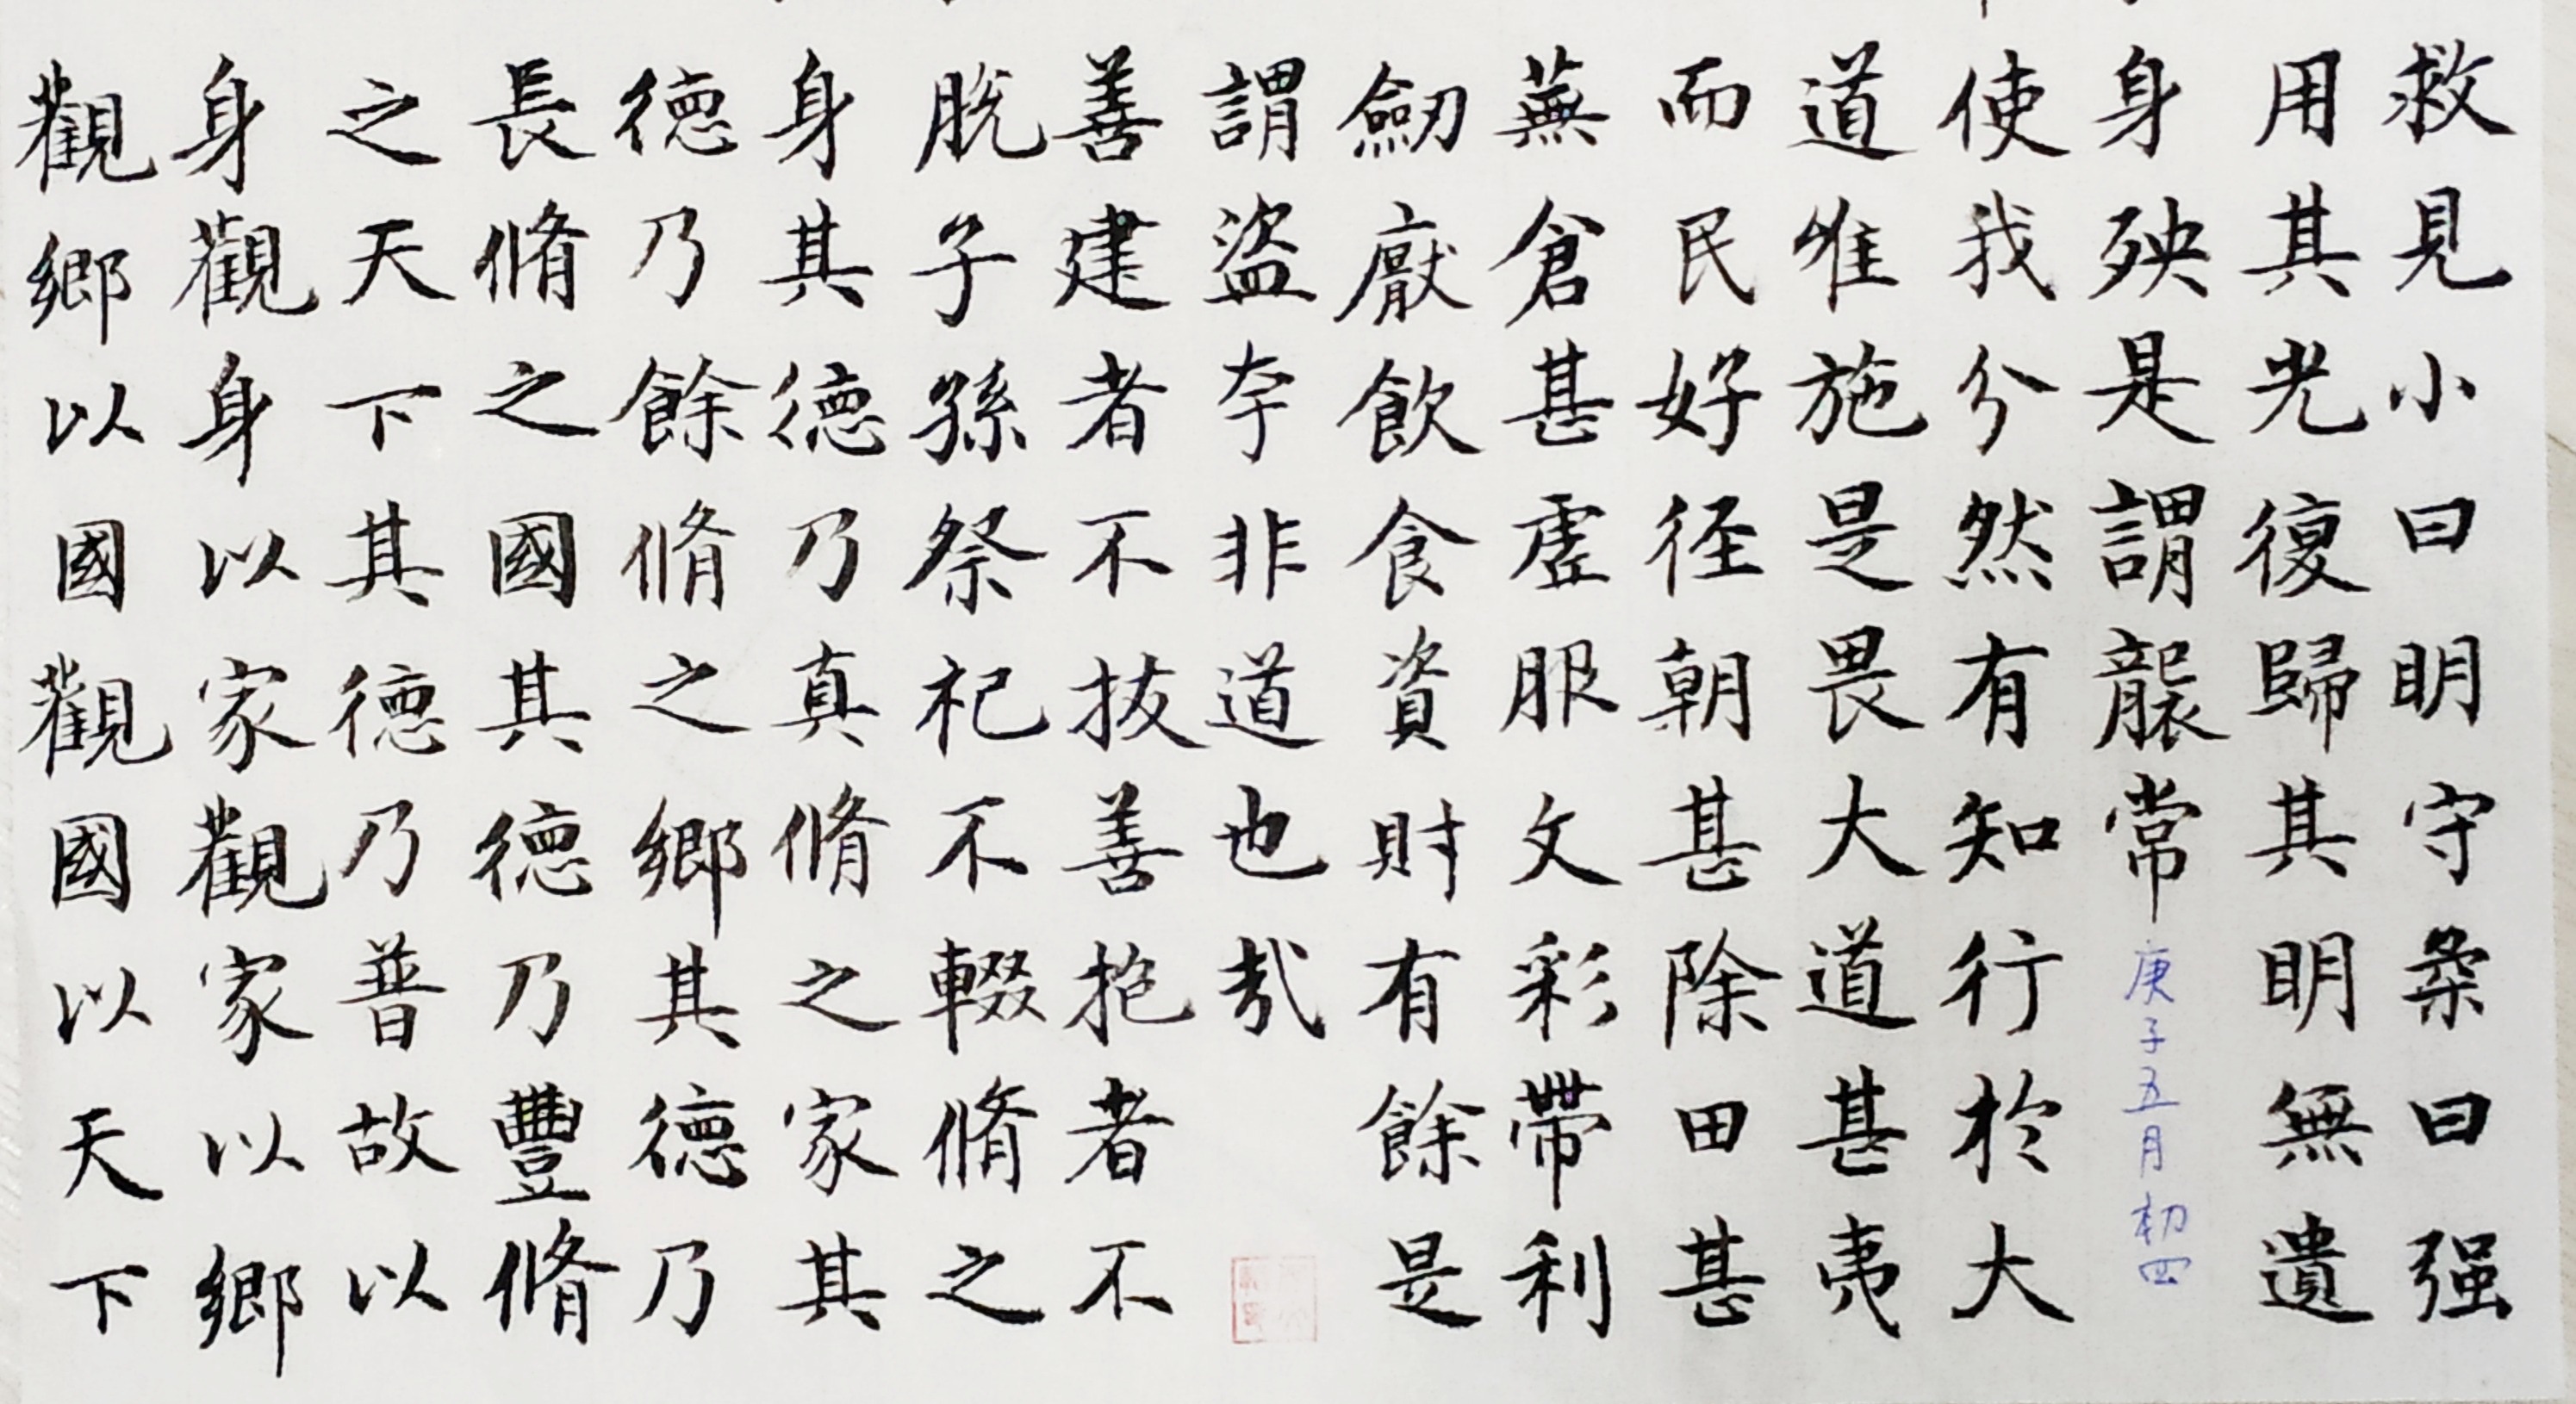 救見小曰明守柔曰强
用其光復歸其明無遺
身殃是謂襲常
庚子五月初四
使我介然有知行於大
道唯施是畏大道甚夷
而民好径朝甚除田甚
蕪倉甚虚服文彩帶利
劒厭飲食資財有餘是
謂盜夸非道也哉
善建者不拔善抱者不
脱子孫祭祀不輟脩之
身其德乃真脩之家其
德乃餘脩之鄉其德乃
長脩之國其德乃豐脩
之天下其德乃普故以
身觀身以家觀家以鄉
觀鄉以國觀國以天下